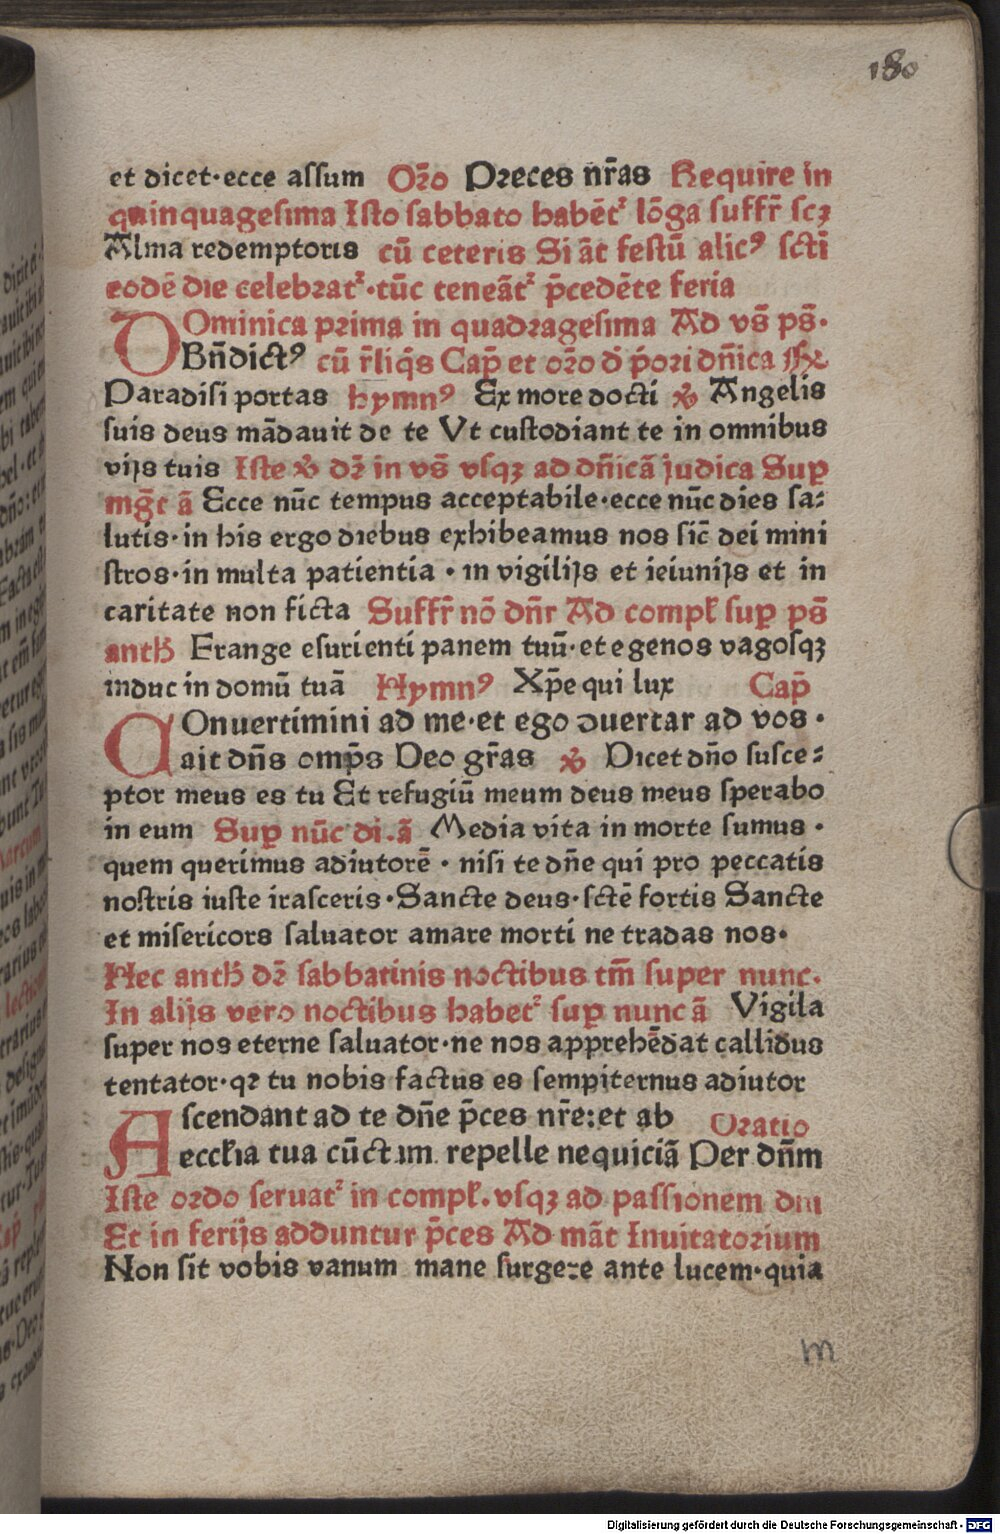 180
et dicet·ecce assum Oṙo Preces nr̄as Require in
quinquagesima Isto sabbato habēt᷑ lōga suffr̄ scꝫ
Alma redemptoris cū ceteris Si āt festū alicꝰ scti̅
eodē die celebrat᷑·tūc teneāt᷑ p̄cedēte feria
DOminica prima in quadragesima Ad vs̄ ps̄·
Bn̄dictꝰ cū r̄liq̄s Cap̄ et or̄o d̄ p̄ori dn̄ica
Paradisi portas hymnꝰ Ex more docti ℣ Angelis
suis deus mādauit de te Vt custodiant te in omnibus
vijs tuis Iste ℣ dr̄ in vs̄ vsqꝫ ad dn̄icā judica Suꝑ
mg̅t ā Ecce nūc tempus acceptabile·ecce nūc dies sa⸗
lutis·in his ergo diebus exhibeamus nos sic̄ dei mini
stros·in multa patientia·in vigilijs et ieiunijs et in
caritate non ficta Suffr̄ nō dn̄r Ad compl̄ suꝑ ps̄
anth̄ Frange esurienti panem tuū·et egenos vagosqꝫ
induc in domū tuā Hymnꝰ Xp̄e qui lux Cap̄
COnuertimini ad me·et ego ꝯuertar ad vos·
ait dn̄s omp̄s Deo gr̄as ℣ Dicet dn̄o susce⸗
ptor meus es tu Et refugiū meum deus meus sperabo
in eum Suꝑ nūc di.ā Media vita in morte sumus·
quem querimus adiutorē·nisi te dn̄e qui pro peccatis
nostris iuste irasceris·Sancte deus·sctē fortis Sancte
et misericors saluator amare morti ne tradas nos·
Hec anth̄ dr̄ sabbatinis noctibus tm̄ super nunc.
In alijs vero noctibus habet᷑ suꝑ nunc ā Vigila
super nos eterne saluator·ne nos apprehēdat callidus
tentator·qꝛ tu nobis factus es sempiternus adiutor
Ascendant ad te dn̄e p̄ces nr̄e:et ab Oratio
eccl̄ia tua cūctam repelle nequiciā Per dn̄m
Iste ordo seruat᷑ in compl̄.vsqꝫ ad passionem dni
Et in ferijs adduntur p̄ces Ad māt Inuitatorium
Non sit vobis vanum mane surgere ante lucem·quia
m
Digitalisierung gefördert durch die Deutsche Forschungsgemeinschaft - DFG